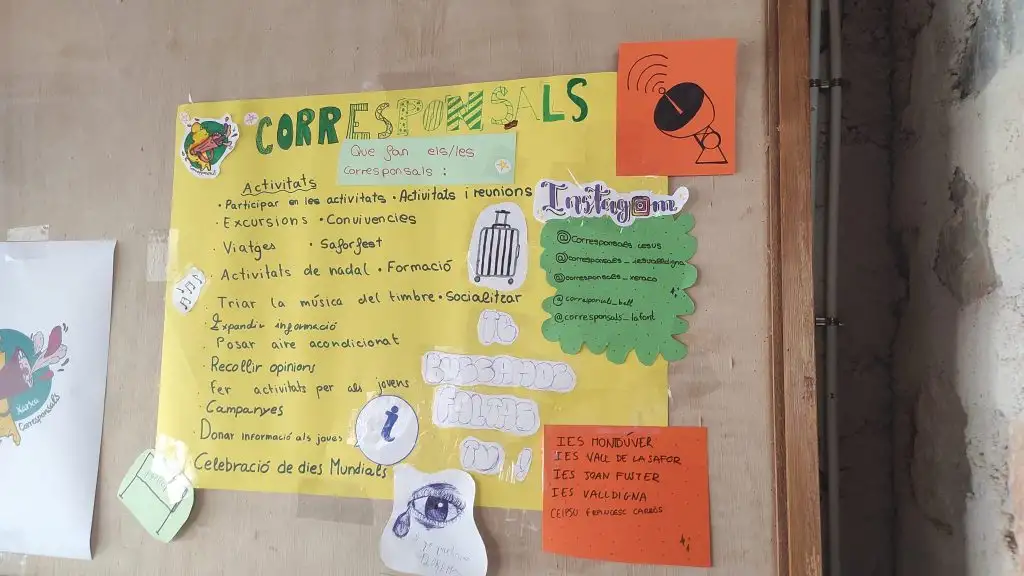 CORRESPONSALS
Que fan els/les
corresponsals :
Activitats
• Participar en les activitats • Activitats i reunions
• Excursions • Convivencies
• Viatges • Saforfest
• Activitats de nadal • Formació
• Triar la música del timbre • Socialitzar
• Expandir informació
• Posar aire acondicionat
• Recollir opinions
• Fer activitats per als jovens
• Campanyes
• Donar informació als joves
• Celebració de dies Mundials
Instagram
@corresponsals_iesvalldigna
@corresponsals_xeraco
@corresponsals_bell
@corresponsals_lafont
i
TE
BUSCAMOS
FALTAS
TU !
IES MONDÚVER
IES VALL DE LA SAFOR
IES JOAN FUSTER
IES VALLDIGNA
CEIPSU FRANCESC CARRÒS
Xarxa
Corresponsals